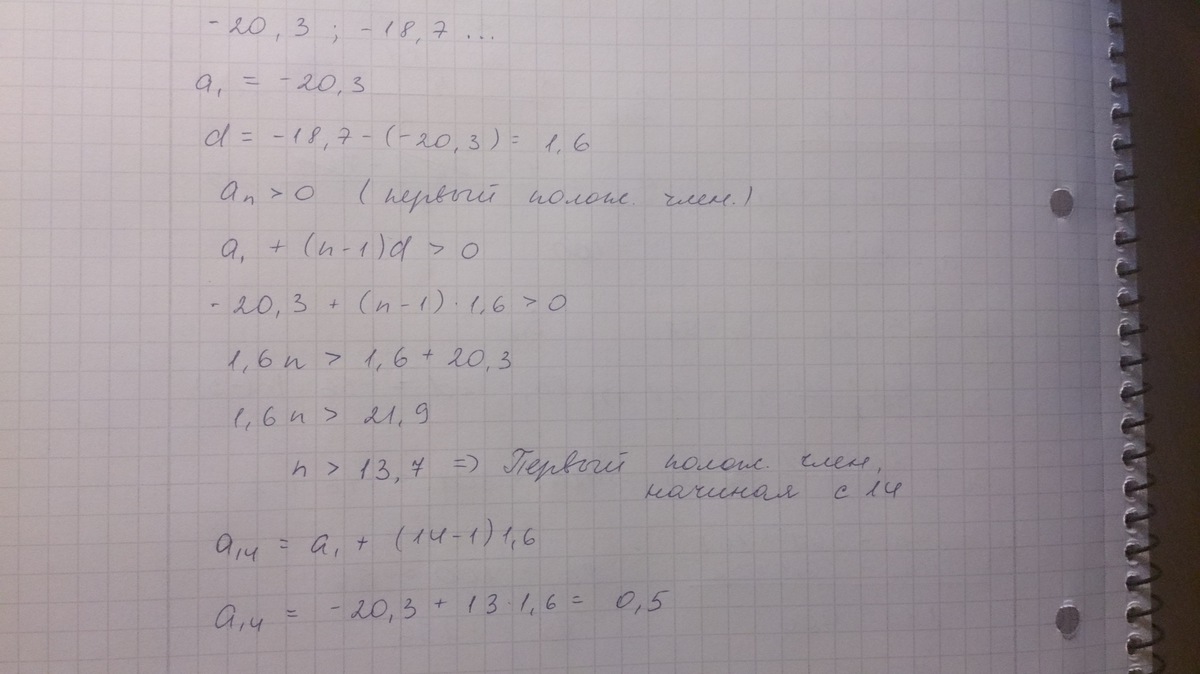 -20,3 ; -18,7 ...
a₁ = -20,3
d = -18,7 - (-20,3) = 1,6
aₙ > 0 (первый полож. член.)
a₁ + (n-1)d > 0
-20,3 + (n-1)·1,6 > 0
1,6n > 1,6 + 20,3
1,6n > 21,9
n > 13,7 => Первый полож. член,
начиная с 14
a₁₄ = a₁ + (14-1)1,6
a₁₄ = -20,3 + 13·1,6 = 0,5